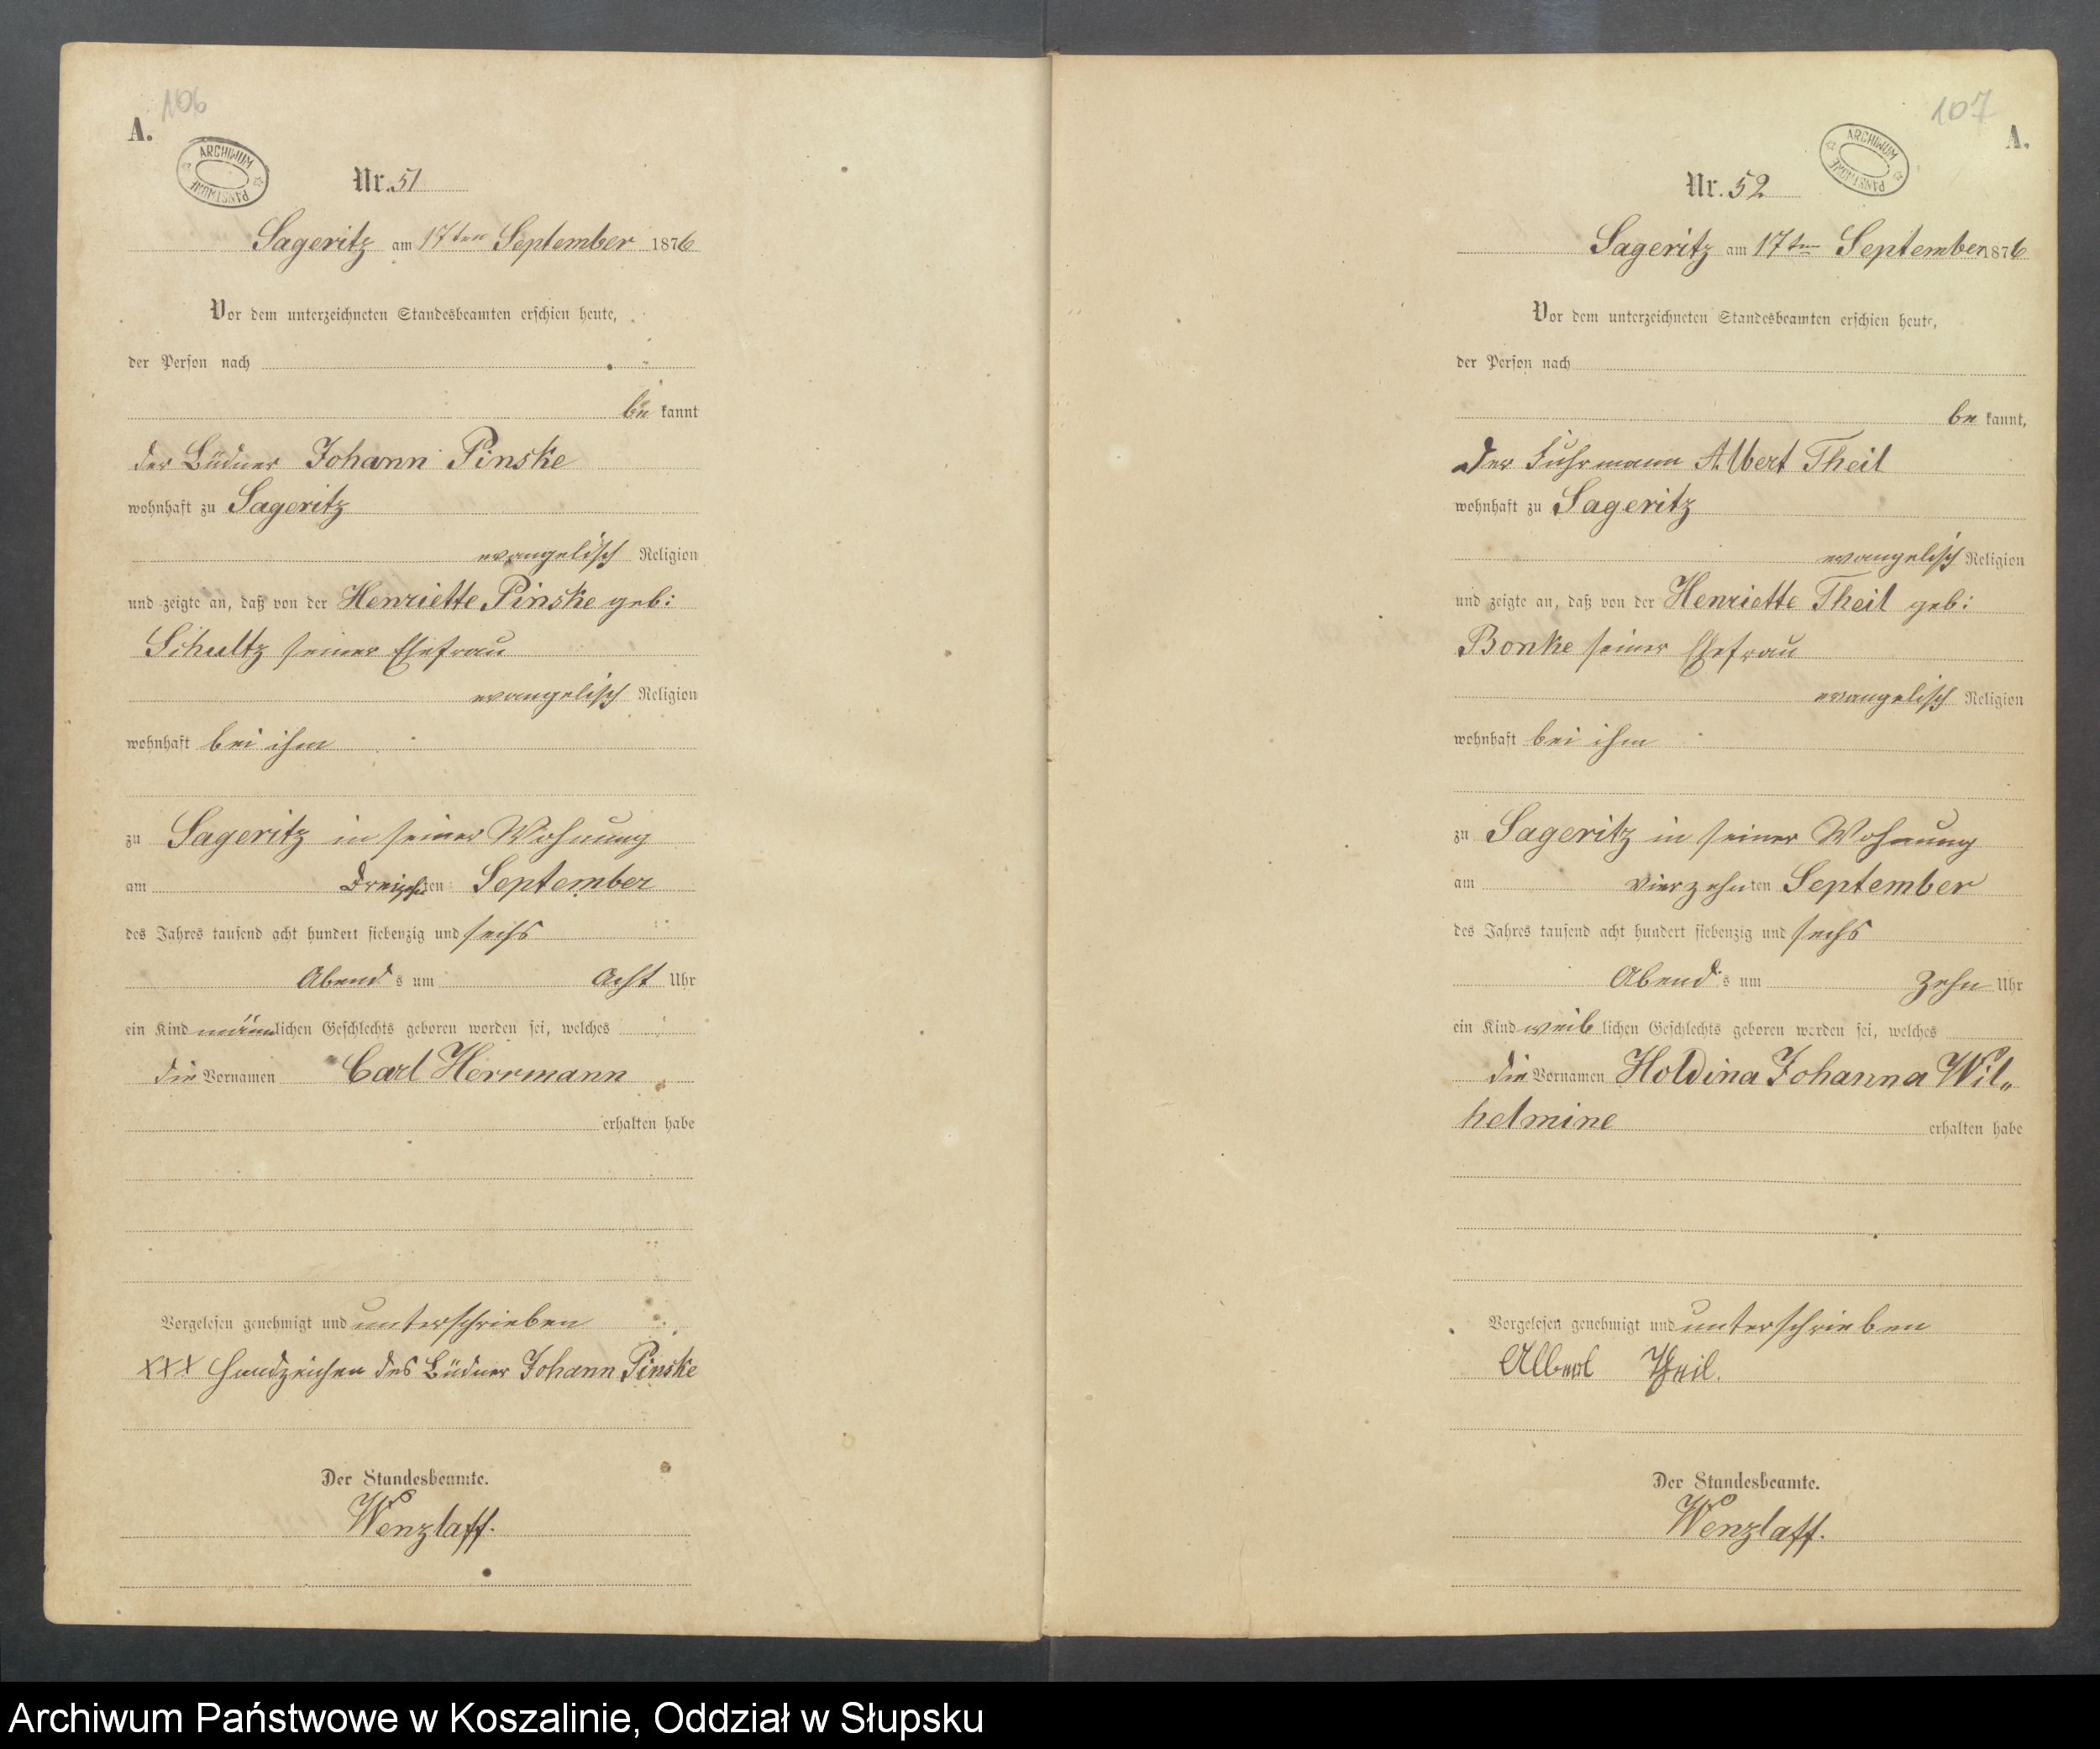 106
A.
ARCHIWUM PAŃSTWOWE
Nr. 51
Sageritz am 17ten September 1876
Vor dem unterzeichneten Standesbeamten erschien heute,
der Person nach
be kannt
der Büdner Johann Pinske
wohnhaft zu Sageritz
evangelisch Religion
und zeigte an, daß von der Henriette Pinske geb:
Schultz seiner Ehefrau
evangelisch Religion
wohnhaft bei ihm
zu Sageritz in seiner Wohnung
am Dreizehnten September
des Jahres tausend acht hundert siebenzig und sechs
Abend s um Acht Uhr
ein Kind männlichen Geschlechts geboren worden sei, welches
die Vornamen Carl Herrmann
erhalten habe
Vorgelesen genehmigt und unterschrieben
XXX Handzeichen des Büdner Johann Pinske
Der Standesbeamte.
Wenzlaff.
107
A.
ARCHIWUM PAŃSTWOWE
Nr. 52
Sageritz am 17ten September 1876
Vor dem unterzeichneten Standesbeamten erschien heute,
der Person nach
be kannt,
der Fuhrmann Albert Theil
wohnhaft zu Sageritz
evangelisch Religion
und zeigte an, daß von der Henriette Theil geb:
Bonke seiner Ehefrau
evangelisch Religion
wohnhaft bei ihm
zu Sageritz in seiner Wohnung
am vierzehnten September
des Jahres tausend acht hundert siebenzig und sechs
Abend s um Zehn Uhr
ein Kind weiblichen Geschlechts geboren worden sei, welches
die Vornamen Holdina Johanna Wil„
helmine erhalten habe
Vorgelesen genehmigt und unterschrieben
Albert Theil.
Der Standesbeamte.
Wenzlaff.
Archiwum Państwowe w Koszalinie, Oddział w Słupsku